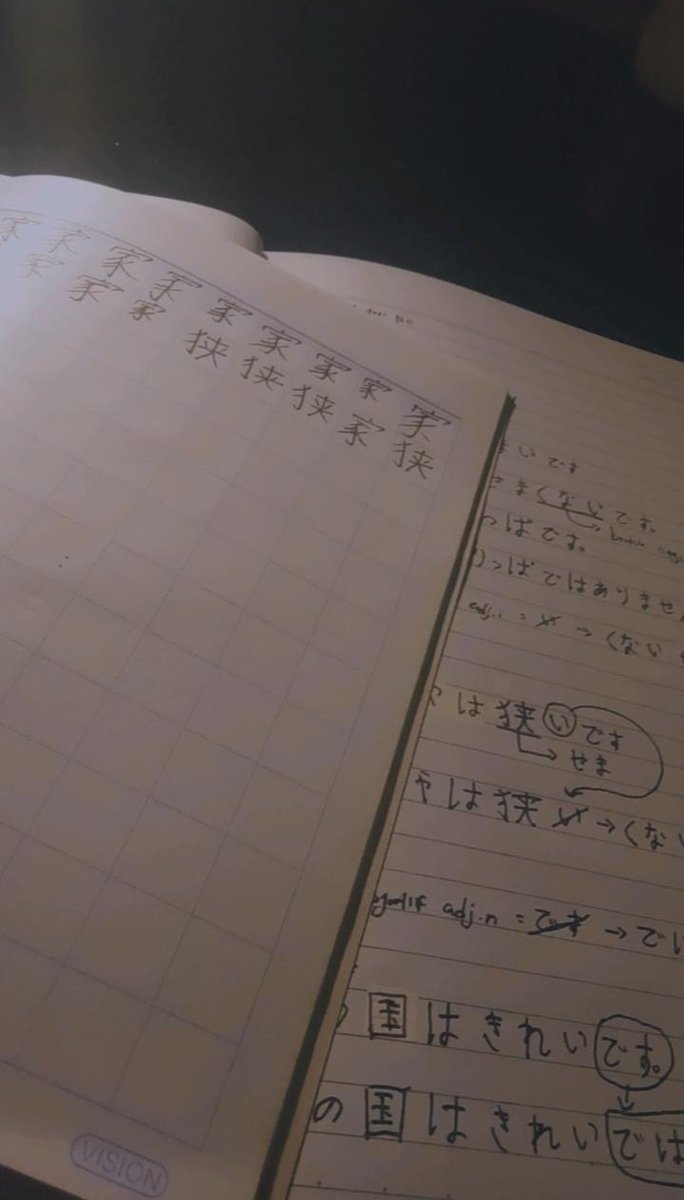 家家家家家家家家家
家家家狭狭狭家狭
いです
まくないです。
っぱです。
りっぱではありませ
adj.i = い → くない
は狭いです
せま
は狭い→くない
adj.n = です → で
国はきれいです。
の国はきれいでは
VISION